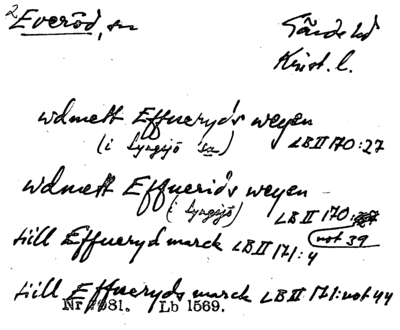 2 Everöd, sn
Gärds hd
Krist. l.
wdmett Effueryd's wegen
(i Lyngsjö sn) LB II 170:27
wdmett Effuerids wegen
(i Lyngsjö) LB II 170:
not 39
till Effueryd marck LB II 171:4
till Effueryds marck LB II 171:not 44
Nr 1981. Lb 1569.